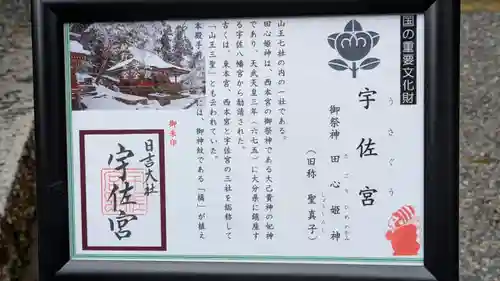 国の重要文化財
宇佐宮
うさぐう
御祭神 田心姫神
たごりひめのかみ
(旧称 聖真子)
しょうしんし
山王七社の内の一社である。
田心姫神は、西本宮の御祭神である大己貴神の妃神
であり、天武天皇三年(六七五)に大分県に鎮座す
る宇佐八幡宮から勧請された。
古くは、東本宮、西本宮と宇佐宮の三社を総称して
「山王三聖」とも云われていた。
本殿手前
には、御神紋である「橘」が植え
御朱印
日吉大社
宇佐宮